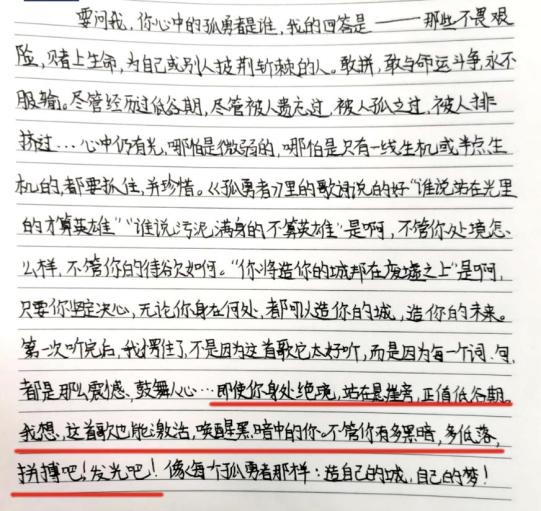 要问我，你心中的孤勇者是谁，我的回答是——那些不畏艰
险，赌上生命，为自己或别人披荆斩棘的人。敢拼，敢与命运斗争，永不
服输。尽管经历过低谷期，尽管被人遗忘过，被人孤立过，被人排
挤过…心中仍有光，哪怕是微弱的，哪怕是只有一线生机或半点生
机的，都要抓住，并珍惜。《孤勇者》里的歌词说的好“谁说站在光里
的才算英雄”“谁说污泥满身的不算英雄”是啊，不管你处境怎
么样，不管你的待欠如何。“你将造你的城邦在废墟之上”是啊，
只要你坚定决心，无论你身在何处，都可以造你的城，造你的未来。
第一次听完后，我愣住了不是因为这首歌它太好听，而是因为每一个词、句，
都是那么震憾、鼓舞人心…即使你身处绝境，站在悬崖旁，正值低谷期。
我想，这首歌也能激活，唤醒黑暗中的你。不管你有多黑暗，多低落，
拼搏吧！发光吧！像每个孤勇者那样：造自己的城，自己的梦！